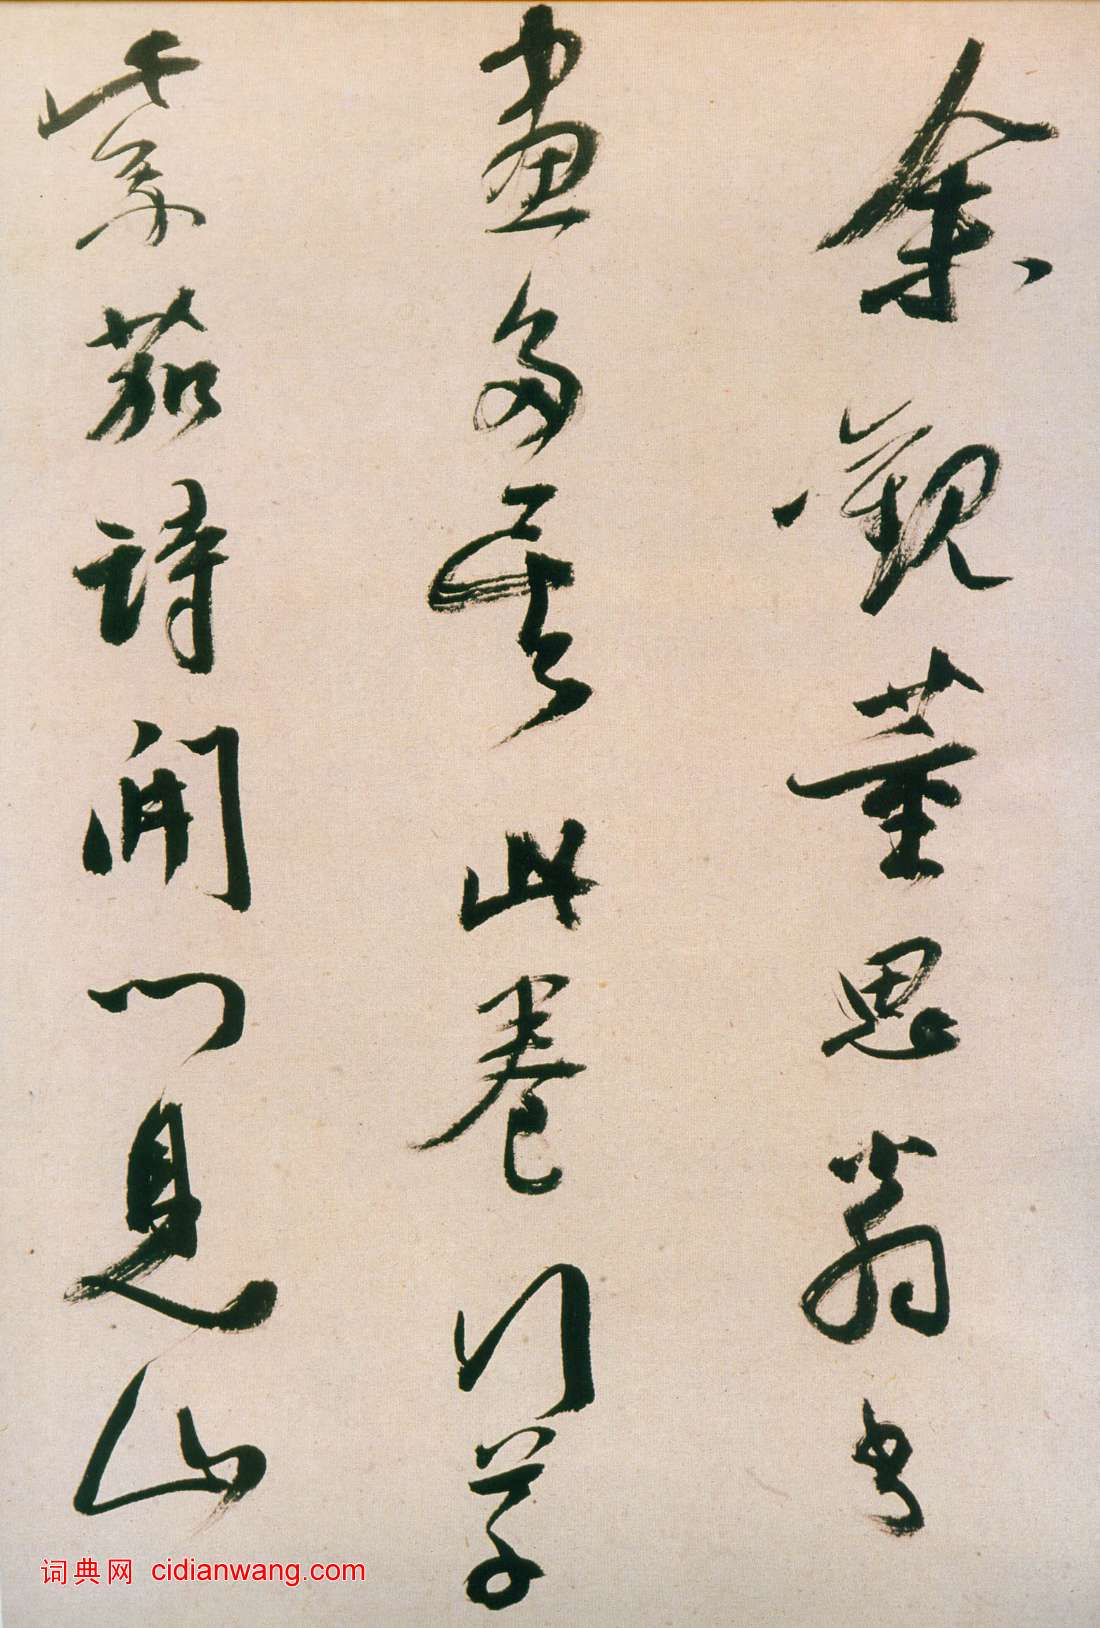 余观董思翁书
画多矣此卷行草
紫茄诗開门見山
词典网 cidianwang.com